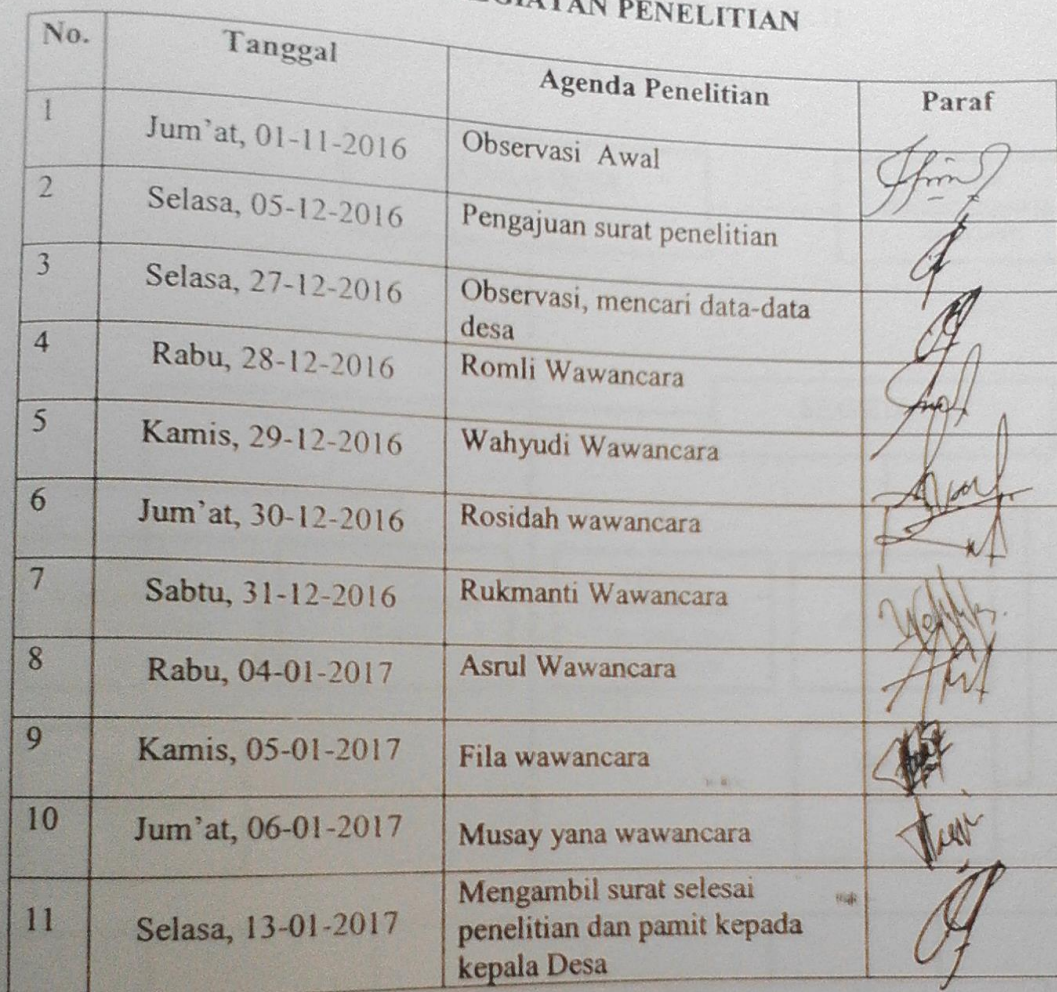 PENELITIAN
No. Tanggal Agenda Penelitian Paraf
1 Jum'at, 01-11-2016 Observasi Awal
2 Selasa, 05-12-2016 Pengajuan surat penelitian
3 Selasa, 27-12-2016 Observasi, mencari data-data
desa
4 Rabu, 28-12-2016 Romli Wawancara
5 Kamis, 29-12-2016 Wahyudi Wawancara
6 Jum'at, 30-12-2016 Rosidah wawancara
7 Sabtu, 31-12-2016 Rukmanti Wawancara
8 Rabu, 04-01-2017 Asrul Wawancara
9 Kamis, 05-01-2017 Fila wawancara
10 Jum'at, 06-01-2017 Musay yana wawancara
11 Selasa, 13-01-2017 Mengambil surat selesai
penelitian dan pamit kepada
kepala Desa